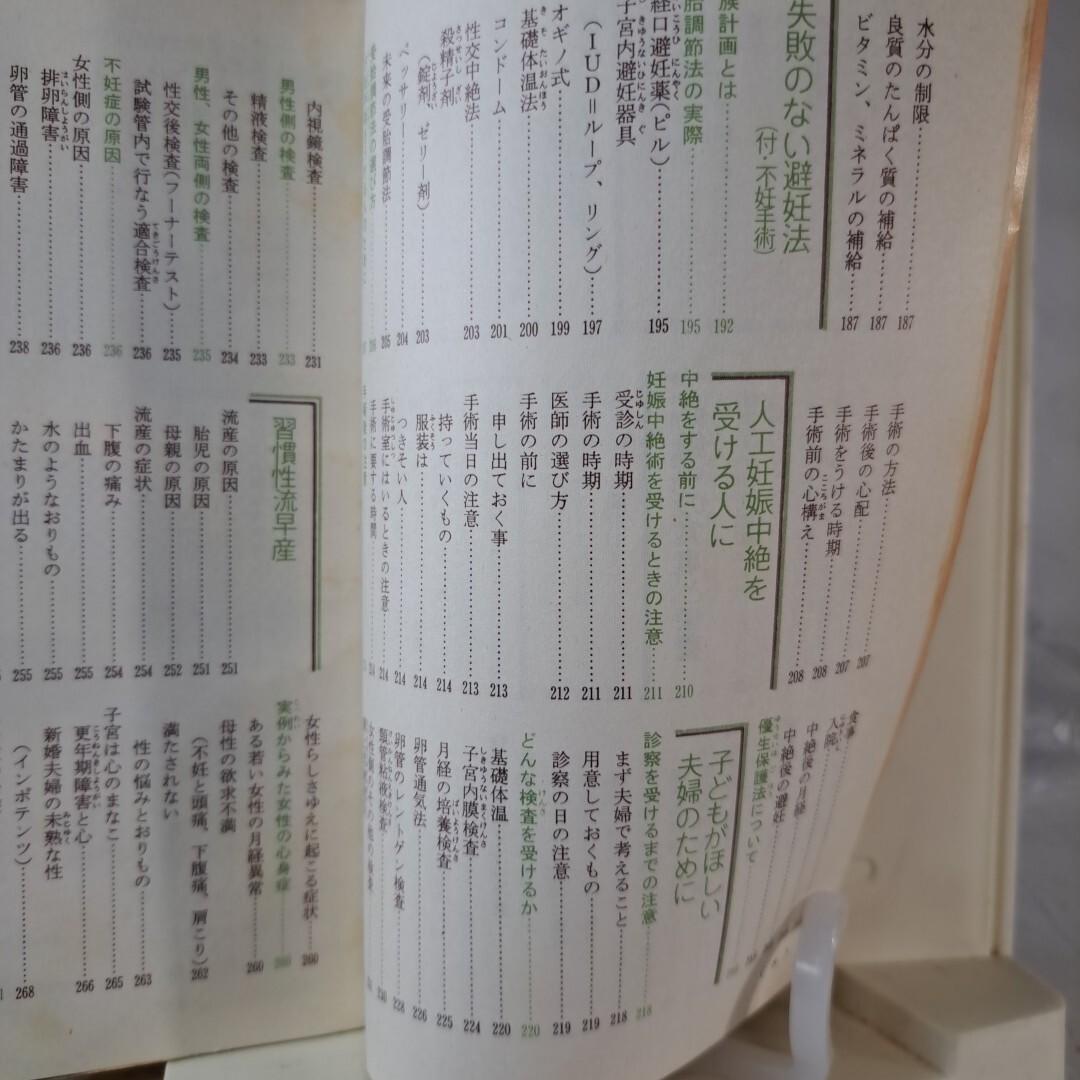 水分の制限 187
良質のたんぱく質の補給 187
ビタミン、ミネラルの補給 187
失敗のない避妊法
(付・不妊手術)
族計画とは 192
胎調節法の実際 195
経口避妊薬(ピル) 195
子宮内避妊器具
(IUD=ループ、リング) 197
オギノ式 199
基礎体温法 200
コンドーム 201
性交中絶法 203
殺精子剤
(錠剤、ゼリー剤) 203
ペッサリー 204
未来の受胎調節法 205
手術の方法 207
手術後の心配 207
手術をうける時期 208
手術前の心構え 208
人工妊娠中絶を
受ける人に
中絶をする前に 210
妊娠中絶術を受けるときの注意 211
受診の時期 211
手術の時期 211
医師の選び方 212
手術の前に
申し出ておく事 213
手術当日の注意 213
持っていくもの 214
服装は 214
つきそい人 214
手術室にはいるときの注意 214
手術に要する時間 214
食事
入院
中絶後の月経
中絶後の避妊
優生保護法について
子どもがほしい
夫婦のために
診察を受けるまでの注意 218
まず夫婦で考えること 218
用意しておくもの 219
診察の日の注意 219
どんな検査を受けるか 220
基礎体温 220
子宮内膜検査 224
月経の培養検査 225
卵管通気法 226
卵管のレントゲン検査 228
頸管粘液検査 230
女性側のその他の検査
内視鏡検査 231
男性側の検査 233
精液検査 233
その他の検査 234
男性、女性両側の検査 235
性交後検査(フーナーテスト) 235
試験管内で行なう適合検査 236
不妊症の原因 236
女性側の原因 236
排卵障害 236
卵管の通過障害 238
習慣性流早産
流産の原因 251
胎児の原因 251
母親の原因 252
流産の症状 254
下腹の痛み 254
出血 255
水のようなおりもの 255
かたまりが出る 255
女性らしさゆえに起こる症状 260
実例からみた女性の心身症 260
ある若い女性の月経異常 260
母性の欲求不満
(不妊と頭痛、下腹痛、肩こり) 262
満たされない
性の悩みとおりもの 263
子宮は心のまなこ 265
更年期障害と心 266
新婚夫婦の未熟な性
(インポテンツ) 268